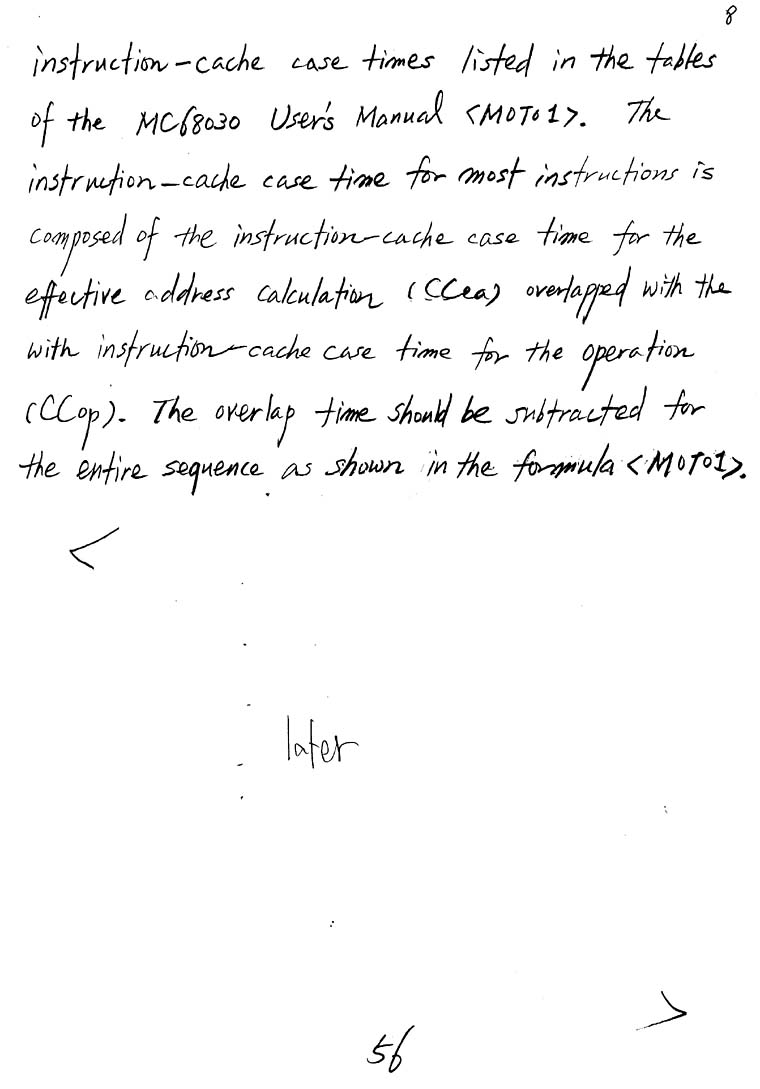 8
instruction-cache case times listed in the tables
of the MC68030 User's Manual <MOTO1>. The
instruction-cache case time for most instructions is
composed of the instruction-cache case time for the
effective address calculation (CCea) overlapped with the
with instruction-cache case time for the operation
(CCop). The overlap time should be subtracted for
the entire sequence as shown in the formula <MOTO1>.
<
later
>
56